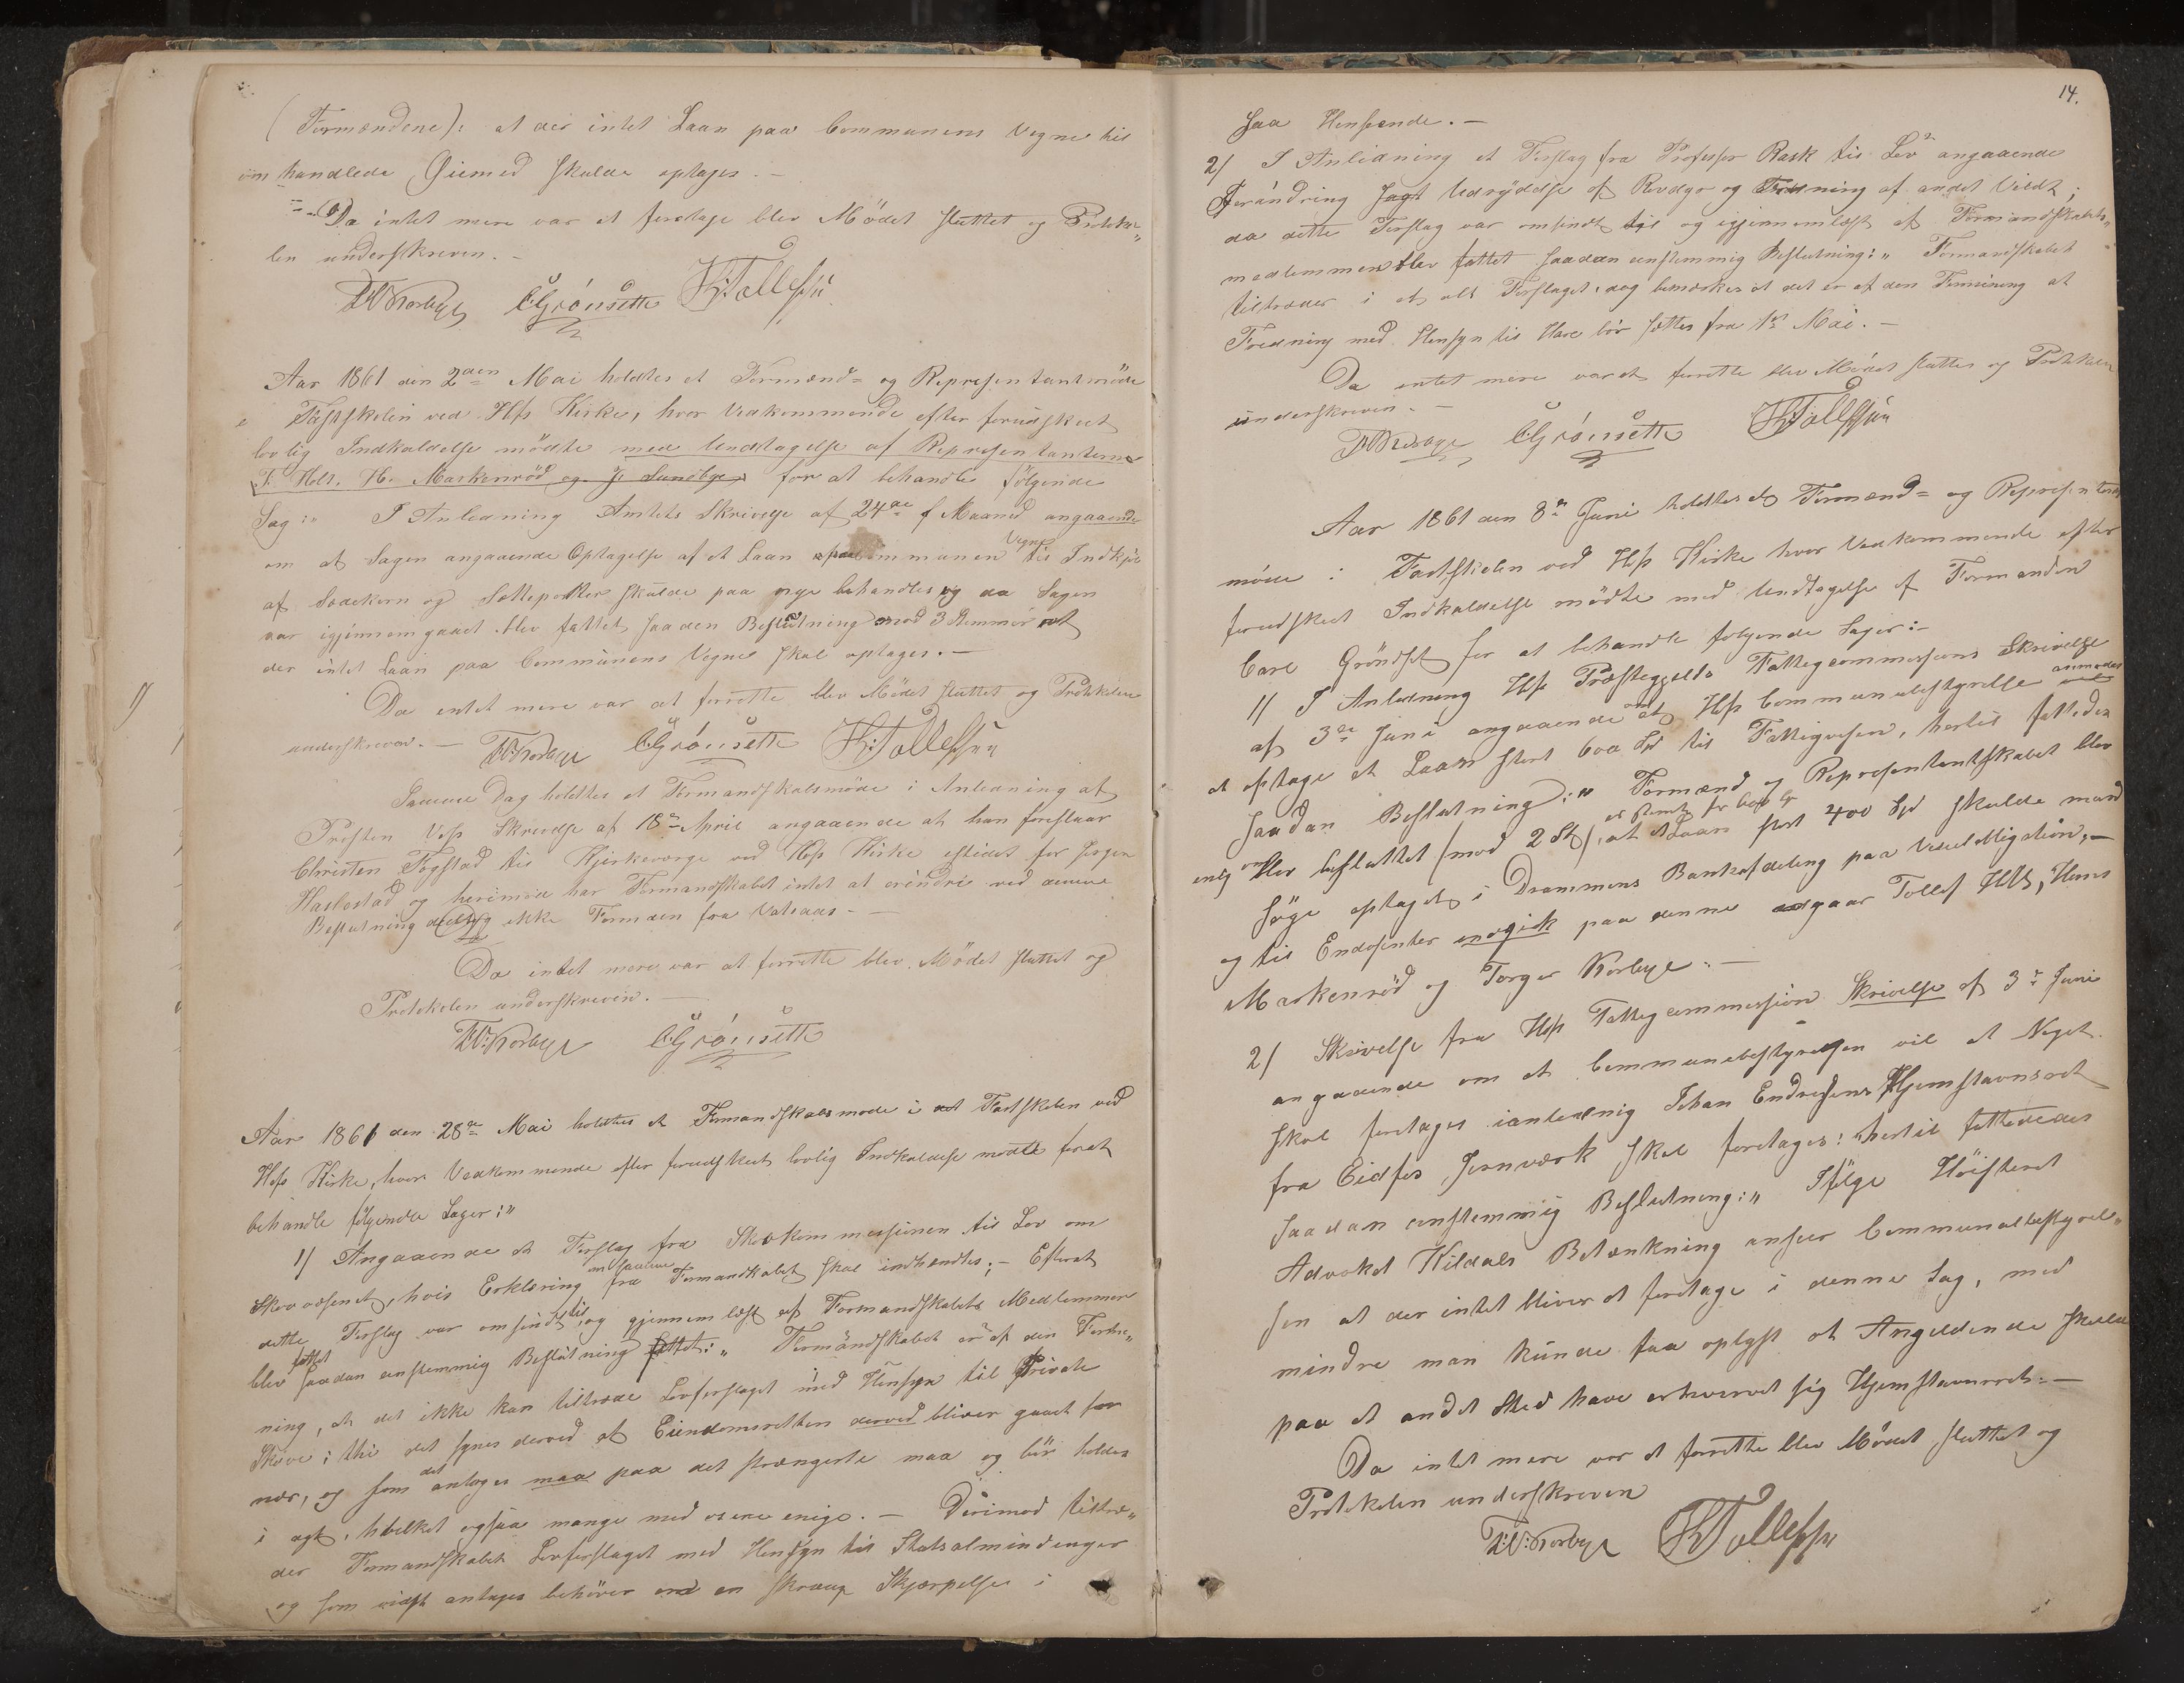 (Formændene): at der intet Laan paa Communens Vegne til
omhandlede Øiemed skulde optages. -
Da intet mere var at foretage blev Mödet sluttet og Protokol„
len underskreven. -
T.V. Korbye C. Grönsette H. Tollefsen
Aar 1861 den 2den Mai holdtes et Formænd= og Representantmöde
i Fastskolen ved Hofs Kirke, hvor Vedkommende efter forudskeet
lovlig Indkaldelse mödte med Undtagelse af Representanterne
T. Holt, H. Markenröd og J. Sundbye for at behandle fölgende
Sag:" I Anledning Amtets Skrivelse af 24de f Maaned angaaende
om at Sagen angaaende Optagelse af et Laan paa Communens Vegne til Indkjöb
af Sædekorn og Sættepoteter skulde paa nye behandles og da Sagen
var igjennemgaaet blev fattet saadan Beslutning mod 3 Stemmer at
der intet Laan paa Communens Vegne skal optages. -
Da intet mere var at forrette blev Mödet sluttet og Protokolen
underskreven. - T.V. Korbye C. Grönsette H. Tollefsen
Samme Dag holdtes et Formandskabsmöde i Anledning af
Presten Voss Skrivelse af 18de April angaaende at han foreslaar
Christen Fogstad til Kjirkeværge ved Hofs Kirke istedet for Jörgen
Haslestad og herimod har Formandskabet intet at erindre ved denne
Beslutning deeltog ikke Formanden fra Vatsaas. -
Da intet mere var at forrette blev Mödet sluttet og
Protokolen underskreven. -
T.V. Korbye C. Grönsette
Aar 1861 den 28de Mai holdtes et Formandskabsmöde i Fastskolen ved
Hofs Kirke, hvor Vedkommende efter forudskeet lovlig Indkaldelse mödte forat
behandle fölgende Sager:"
1/ Angaaende et Forslag fra Skovkommissionen til Lov om
Skovvæsenet, hvis Erklæring om saadan fra Formandskabet skal indhentes; - Efterat
dette Forslag var omsendt til og gjennemlæst af Formandskabets Medlemmer
blev fattet saadan enstemmig Beslutning fattet: „ Formandskabet er af den Formee„
ning, at det ikke kan tiltræde Lovforslaget med Hensyn til Private
Skove; thi det synes derved at Eiendomsretten derved bliver gaaet for
nær, og som det antages maa paa det strængeste maa og bör holdes
i agt, hvilket ogsaa mange med os ere enige. - Derimod tiltræ„
der Formandskabet Lovforslaget med Hensyn til Statsalmindinger
og som vidst antages behöver en streng Skjærpelse i
14.
saa Henseende. -
2/ I Anledning et Forslag fra Professor Rask til Lov angaaende
Forandring Jagt Udryddelse af Rovdyr og Fredning af andet Vildt;
da dette Forslag var omsendt til og igjennemlæst af Formandskabets„
medlemmer blev fattet saadan eenstemmig Beslutning: „ Formandskabet
tiltræder i et alt Forslaget, dog bemærkes at det er af den Formening at
Fredning med Hensyn til Hare bör sættes fra 1ste Mai. -
Da intet mere var at forrette blev Mödet sluttet og Protokolen
underskreven. -
T.V. Korbye C. Grönsette H. Tollefsen
Aar 1861 den 8de Juni holdtes et Formænd= og Representant
möde i Fastskolen ved Hofs Kirke hvor Vedkommende efter
forudskeet Indkaldelse mödte med Undtagelse af Formanden
Carl Gröndset for at behandle fölgende Sager:-
1/ I Anledning Hofs Præstegjelds Fattigcommissions Skrivelse
af 3de Juni angaaende at Hofs Communebestyrelse anmodes
at optage et Laan stort 600 Spd til Fattigvesen, hertil fattedes
saadan Beslutning: „ Formænd og Representantskabet blev
enig om blev besluttet (mod 2 St), at et Laan stort 400 Spd skulde man
söge optaget i Drammens Bankafdeling paa Vexelobligation, -
og til Endosenter paa denne gaar Tollef Holt, Hans
Markenröd og Torger Korbye. -
2/ Skrivelse fra Hofs Fattigcommission Skrivelse af 3de Juni
angaaende om at Communebestyrelsen vil at Noget
skal foretages ianledning Johan Endresens Hjemstavnsret
fra Eidfos Jernværk skal foretages: hertil fattedes
saadan eenstemmig Beslutning: „ Ifölge Höiesteret
Advokat Kildals Betænkning anseer Communalbestyrel„
sen at der intet bliver at foretage i denne Sag, med
mindre man kunde faa oplyst at Angjeldende skulde
paa et andet Sted have erhvervet sig Hjemstavnsret. -
Da intet mere var at forrette blev Mödet sluttet og
Protokolen underskreven
T.V. Korbye H. Tollefsen